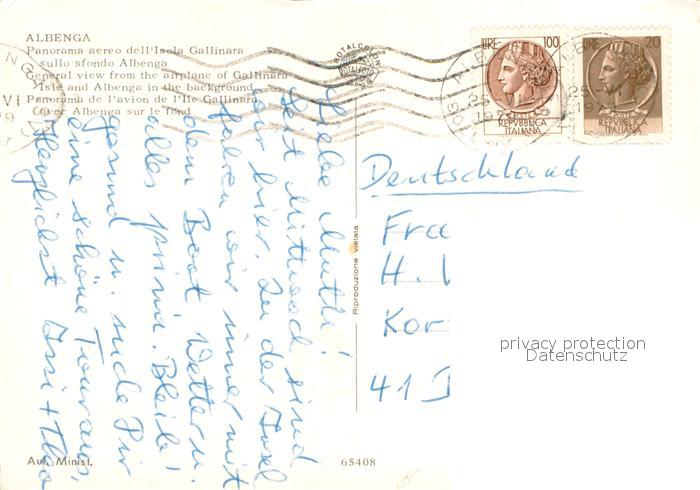 ALBENGA
Panorama aereo dell'Isola Gallinara
sullo sfondo Albenga
General view from the airplane of Gallinara
Isle and Albenga in the background
Panorama de l'avion de l'Ile Gallinara
avec Albenga sur le fond
ROTALCOLOR
LIRE 100
REPVBBLICA
ITALIANA
LIRE 20
REPVBBLICA
ITALIANA
Liebe Mutti!
Seit Mittwoch sind
wir hier. Zu der Insel
fahren wir immer mit
dem Boot. Wetter u.
alles prima. Bleib
gesund u. suche Dir
eine schöne Tour aus,
Herzlichst
Riproduzione vietata
Deutschland
H.
41
privacy protection
Datenschutz
Aut. Minist.
65408